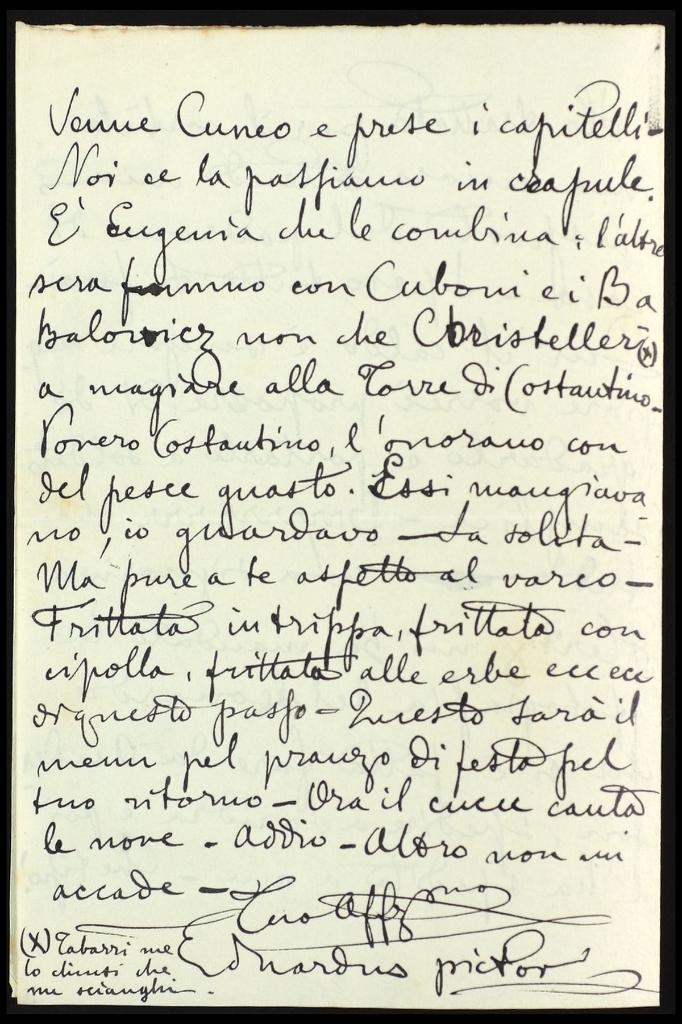 Venne Cuneo e prese i capitelli -
Noi ce la passiamo in crapule.
E' Eugenia che le combina: l'altra
sera fummo con Cuboni e i Ba
balowicz non che Christeller (x)
a magiare alla Torre di Costantino -
Povero Costantino, l'onorano con
del pesce guasto. Essi mangiava
no, io guardavo - La solita -
Ma pure a te aspetto al varco -
Frittata in trippa, frittata con
cipolla, frittata alle erbe ecc ecc
di questo passo - Questo sarà il
menu pel pranzo di festa pel
tuo ritorno - Ora il cucu canta
le nove - Addio - Altro non mi
accade -
Tuo Affmo
Eduardus pictor
(X) Tabarri me
lo dimisi che
me